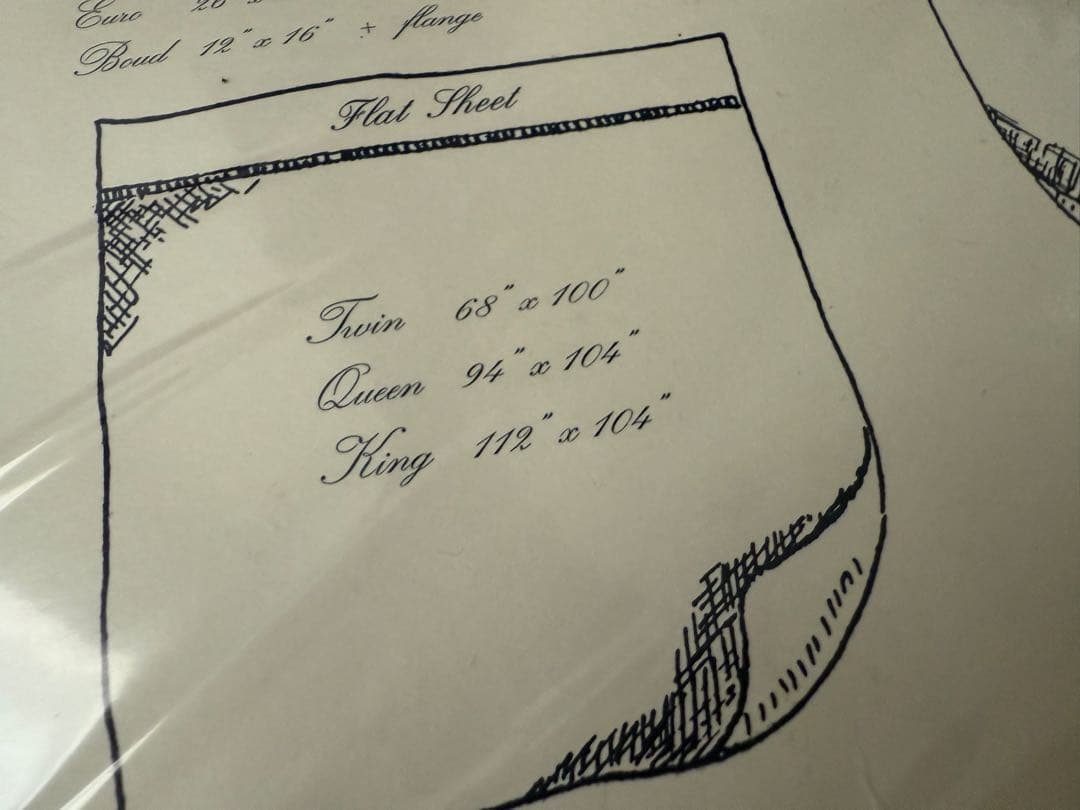 Euro
Boud 12" x 16" ± flange
Flat Sheet
Twin 68" x 100"
Queen 94" x 104"
King 112" x 104"